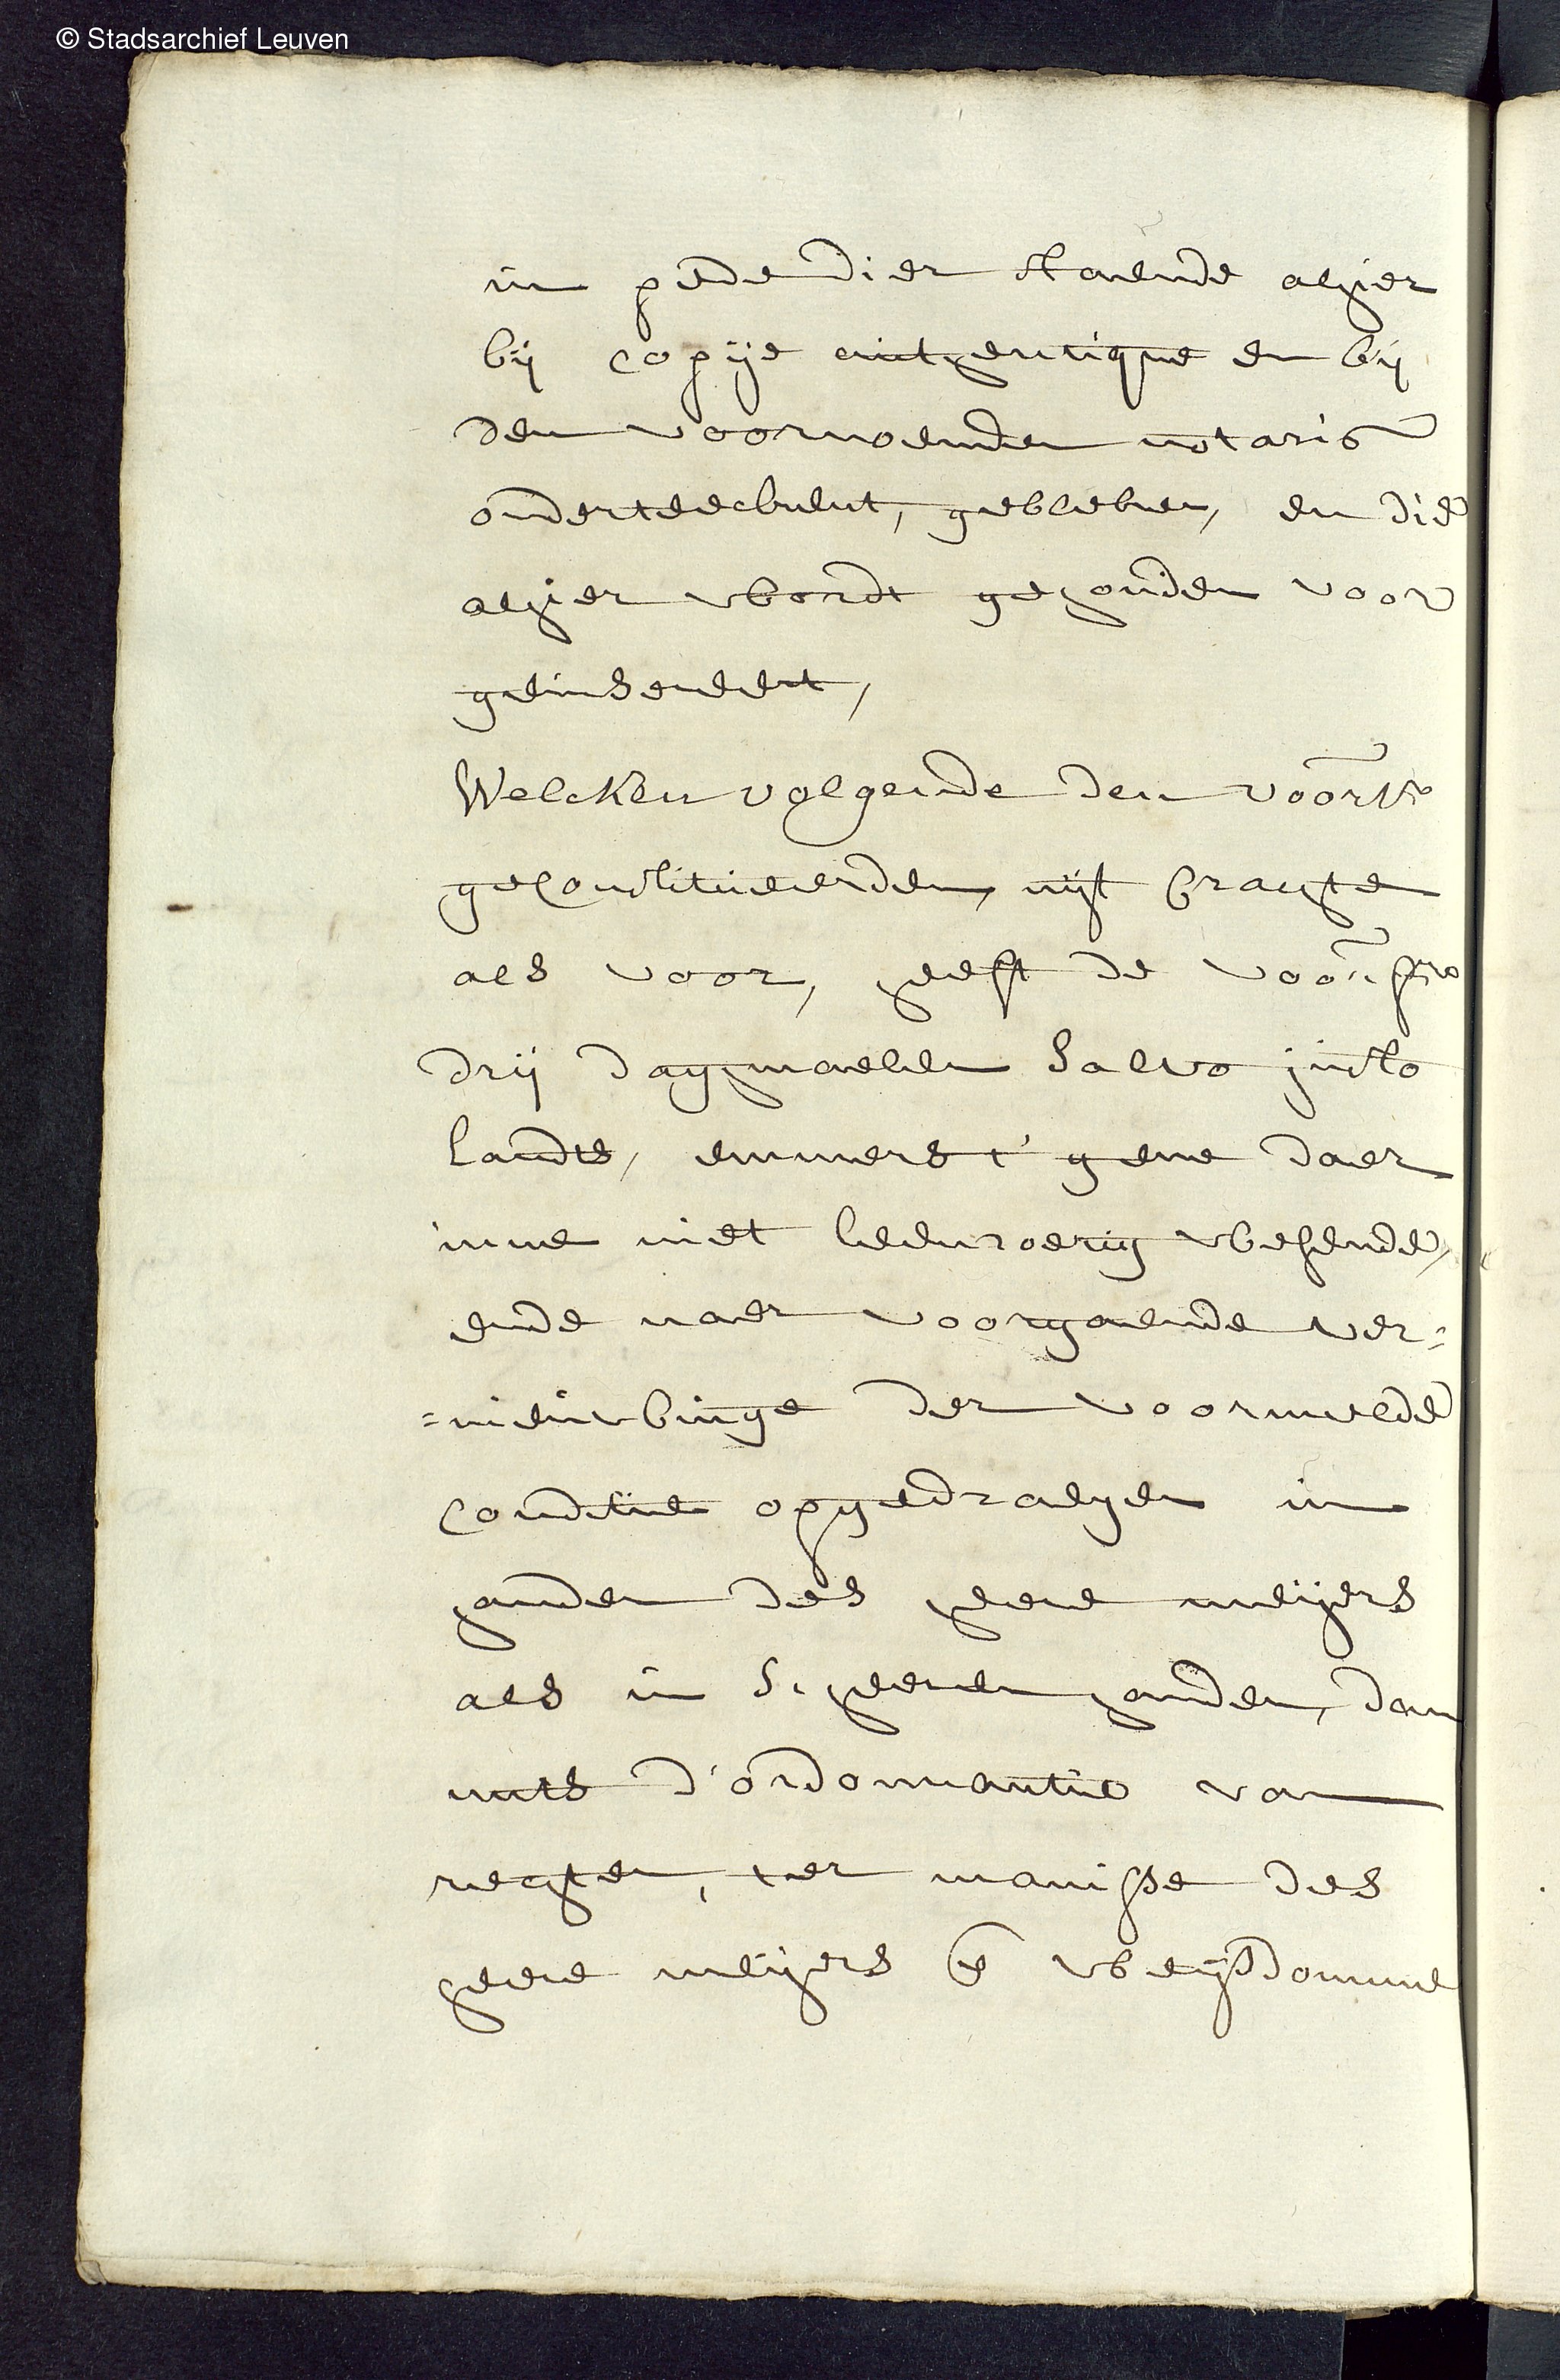 © Stadsarchief Leuven
in pede dier staende alhier
bij copije authentique en bij
den voornoemden notaris
onderteeckent, gebleken, en die
alhier wordt gehouden voor
geinsereert,
Welcken volgende den voors.
geconstitueerden, uijt crachte
als voor, heeft de voors.
drij daghmaelen salvo justo
landts, emmers t'gene daer
inne niet leenroerig wesende,
ende naer voorgaende ver=
=nieuwinge der voormelde
conditie opgedraegen in
handen des heere meijers
als in s'heeren handen, dan
mits d'ordonnantie van
rechte, ter manisse des
heere meijers e wijsdomme